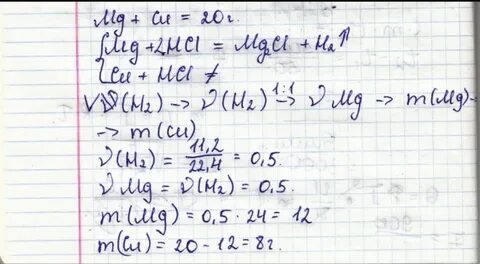 Mg + Cu = 20г.
{Mg + 2HCl = Mg2Cl + H2↑
{Cu + HCl ≠
V(H2) → ν(H2) 1:1→ ν Mg → m(Mg) -
→ m(Cu)
ν(H2) = 11,2/22,4 = 0,5.
ν Mg = ν(H2) = 0,5.
m(Mg) = 0,5 · 24 = 12
m(Cu) = 20 - 12 = 8г.